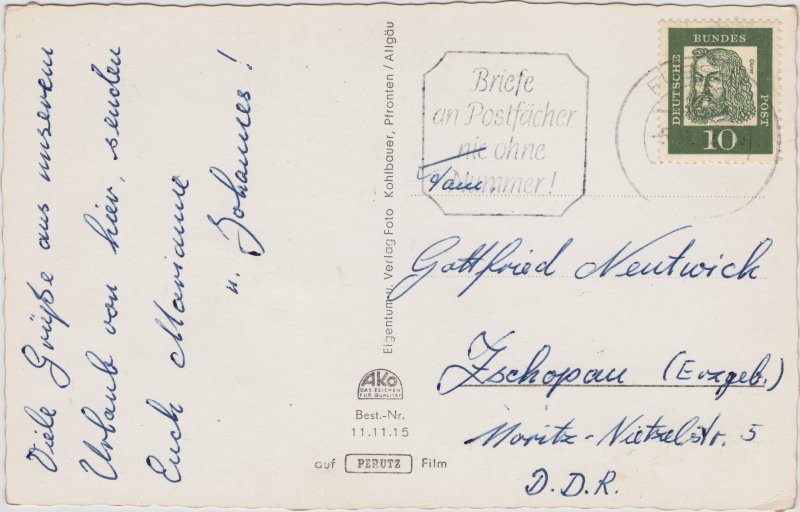 Viele Grüße aus unserem
Urlaub von hier, senden
Euch Marianne
u. Johannes!
Eigentum u. Verlag Foto Kohlbauer, Pfronten / Allgäu
AKO
DAS ZEICHEN
FÜR QUALITÄT
Best.-Nr.
11.11.15
auf PERUTZ Film
Briefe
an Postfächer
nie ohne
Nummer!
DEUTSCHE
BUNDES
POST
Dürer
10
Fam.
Gottfried Neutwick
Zschopau (Erzgeb.)
Moritz-Nietzelstr. 5
D.D.R.